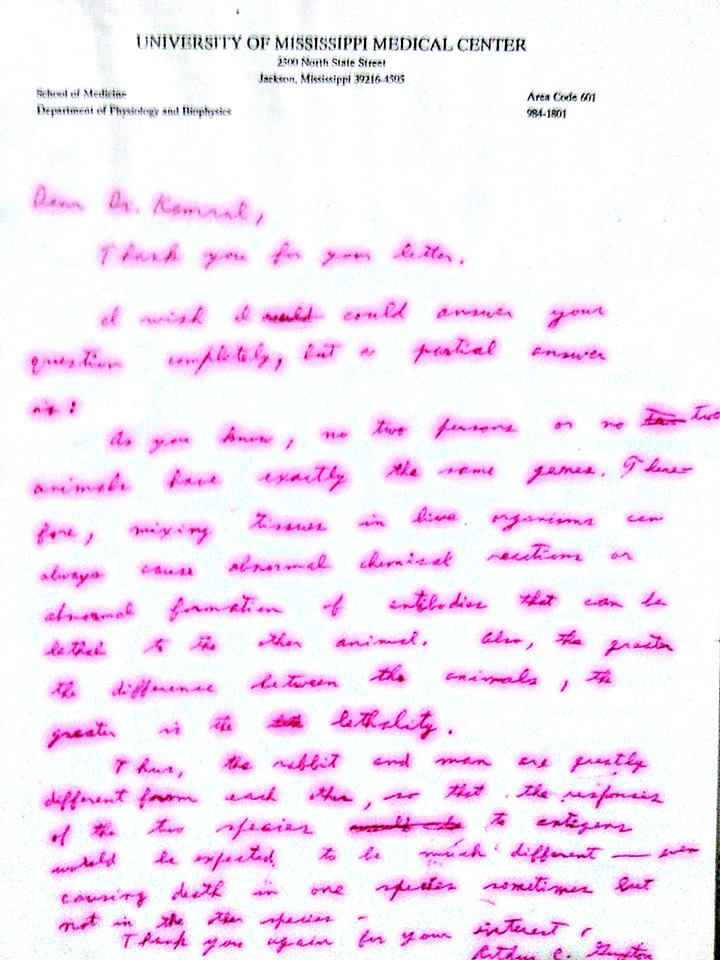 UNIVERSITY OF MISSISSIPPI MEDICAL CENTER
2500 North State Street
Jackson, Mississippi 39216-4505
School of Medicine
Department of Physiology and Biophysics
Area Code 601
984-1801
Dear Dr.
Thank you for your letter.
I wish I could could answer your
question completely, but a partial answer
is:
As you know, no two persons or no two
animals have exactly the same genes. There-
fore, mixing tissues in live organisms can
always cause abnormal chemical reactions or
abnormal formation of antibodies that can be
lethal to the other animal. Also, the greater
the difference between the animals, the
greater is the lethality.
Thus, the rabbit and man are greatly
different from each other, so that the responses
of the two species to antigens
would be expected to be much different — even
causing death in one species sometimes but
not in the other species.
Thank you again for your interest,
Arthur C. Guyton